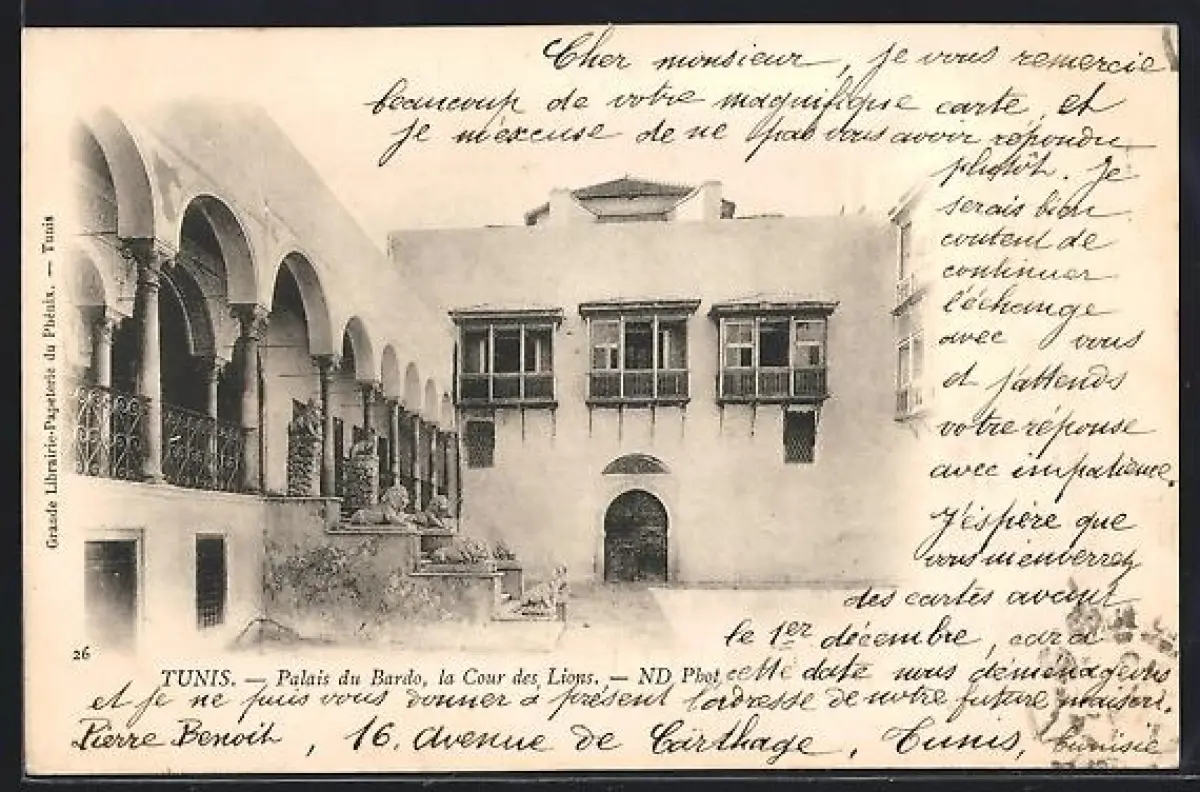 Cher monsieur, je vous remercie
beaucoup de votre magnifique carte et
je m'excuse de ne pas vous avoir répondu
plutôt. Je
serais bien
content de
continuer
l'échange
avec vous
et j'attends
votre réponse
avec impatience.
J'éspère que
vous m'enverrez
des cartes avant
le 1er décembre, car a
cette date nous déménageons
et je ne puis vous donner à présent l'adresse de notre future maison.
Pierre Benoit, 16. Avenue de Carthage, Tunis, Tunisie
Grande Librairie-Papeterie du Phénix. — Tunis
26
TUNIS. — Palais du Bardo, la Cour des Lions. — ND Phot.